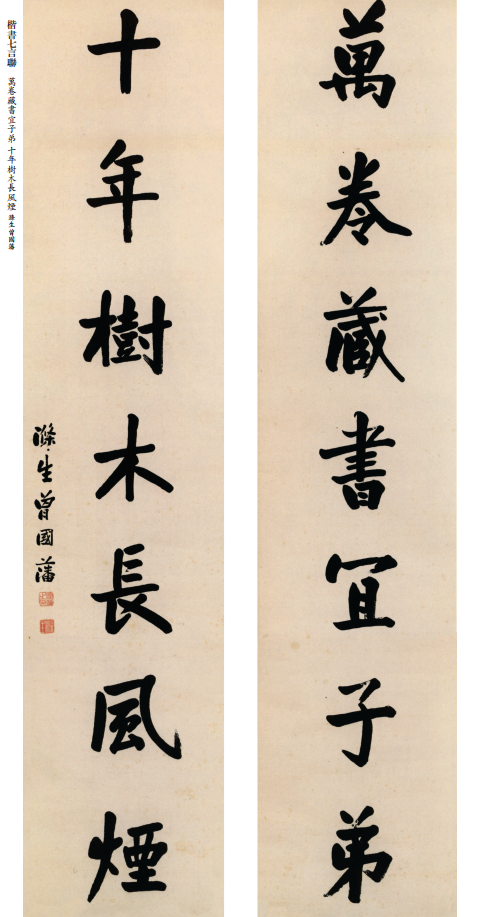 萬卷藏書宜子弟
十年樹木長風煙
滌生曾國藩
楷書七言聯 萬卷藏書宜子弟 十年樹木長風煙 滌生曾國藩